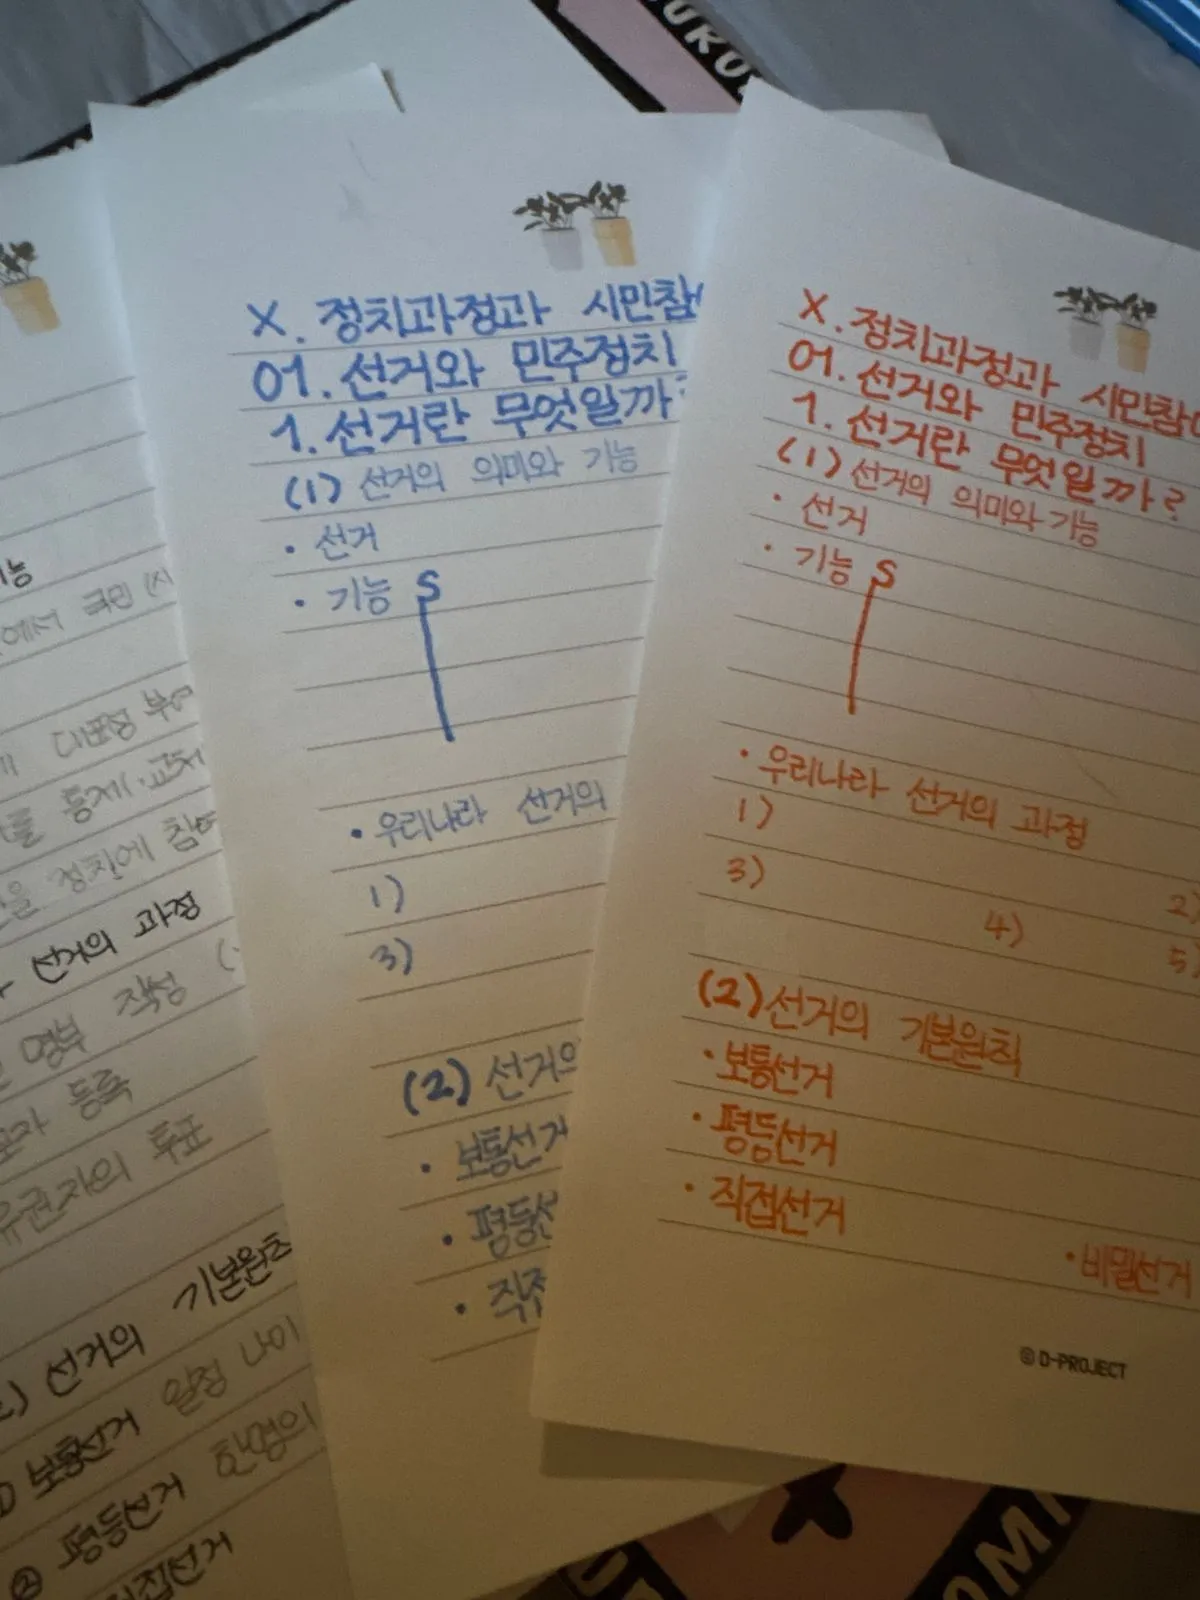 능
에서 국민
대표성 부여
를 통제
을 정치에 참여
선거의 과정
명부 작성
등록
유권자의 투표
선거의 기본원칙
보통선거 일정 나이
② 평등선거 한 명의
직접선거
X. 정치과정과 시민참
01. 선거와 민주정치
1. 선거란 무엇일까?
(1) 선거의 의미와 기능
• 선거
• 기능 S
• 우리나라 선거의
1)
3)
(2) 선거의
• 보통선거
• 평등선
• 직접
X. 정치과정과 시민참여
01. 선거와 민주정치
1. 선거란 무엇일까?
(1) 선거의 의미와 기능
• 선거
• 기능 S
• 우리나라 선거의 과정
1) 2)
3) 4) 5)
(2) 선거의 기본원칙
• 보통선거
• 평등선거
• 직접선거
• 비밀선거
© D-PROJECT